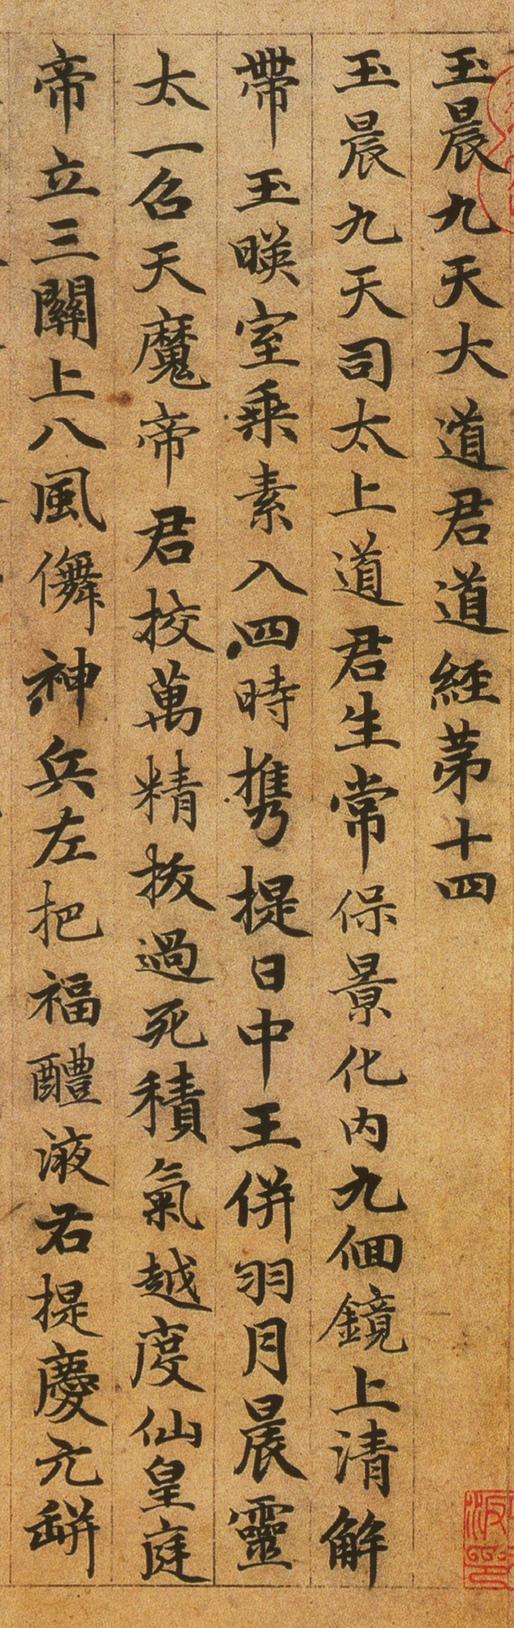 玉晨九天大道君道經苐十四
玉晨九天司太上道君生常保景化内九佪鏡上清解
帶玉暎室乗素入四時携提日中王併羽月晨靈
太一召天魔帝君挍萬精拔過死積氣越度仙皇庭
帝立三關上八風儛神兵左把福醴液右提慶元缾